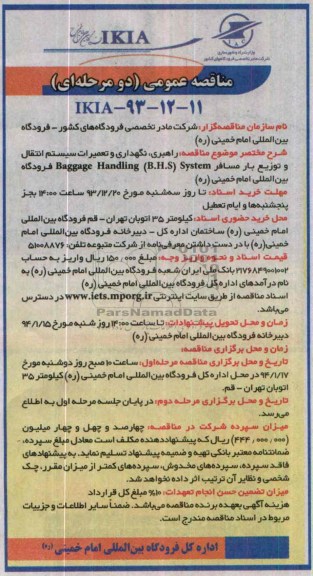 IKIA
مناقصه عمومی (دو مرحله‌ای)
IKIA-۹۳-۱۲-۱۱
نام سازمان مناقصه‌گزار: شرکت مادر تخصصی فرودگاه‌های کشور - فرودگاه
بین‌المللی امام خمینی (ره)
شرح مختصر موضوع مناقصه: راهبری، نگهداری و تعمیرات سیستم انتقال
و توزیع بار مسافر Baggage Handling (B.H.S) System فرودگاه
بین‌المللی امام خمینی (ره)
مهلت خرید اسناد: تا روز سه‌شنبه مورخ ۹۳/۱۲/۲۰ ساعت ۱۴:۰۰ بجز
پنجشنبه‌ها و ایام تعطیل
محل خرید حضوری اسناد: کیلومتر ۳۵ اتوبان تهران - قم فرودگاه بین‌المللی
امام خمینی (ره) ساختمان اداره کل - دبیرخانه فرودگاه بین‌المللی امام
خمینی(ره) با در دست داشتن معرفی‌نامه از شرکت متبوعه تلفن: ۵۱۰۰۸۸۷۶
قیمت اسناد و نحوه واریز وجه: مبلغ ۱۵۰/۰۰۰ ریال واریز به حساب
۲۱۷۶۸۴۹۰۰۱۰۰۲ بانک ملی ایران شعبه فرودگاه بین‌المللی امام خمینی (ره) به
نام درآمدهای اداره کل فرودگاه بین‌المللی امام خمینی (ره)
اسناد مناقصه از طریق سایت اینترنتی www.iets.mporg.ir در دسترس
می‌باشد.
زمان و محل تحویل پیشنهادات: تا ساعت ۱۴:۰۰ روز شنبه مورخ ۹۴/۱/۱۵
دبیرخانه فرودگاه بین‌المللی امام خمینی (ره)
زمان و محل برگزاری مناقصه:
تاریخ و محل برگزاری مناقصه مرحله اول: ساعت ۱۰ صبح روز دوشنبه مورخ
۹۴/۱/۱۷ در محل اداره کل فرودگاه بین‌المللی امام خمینی (ره) کیلومتر ۳۵
اتوبان تهران - قم.
تاریخ و محل برگزاری مرحله دوم: در پایان جلسه مرحله اول به اطلاع
می‌رسد.
میزان سپرده شرکت در مناقصه: چهارصد و چهل و چهار میلیون
(۴۴۴/۰۰۰/۰۰۰) ریال که پیشنهاددهنده مکلف است معادل مبلغ سپرده،
ضمانتنامه معتبر بانکی تهیه و ضمیمه پیشنهاد تسلیم نماید. به پیشنهادهای
فاقد سپرده، سپرده‌های مخدوش، سپرده‌های کمتر از میزان مقرر، چک
شخصی و نظایر آن ترتیب اثر داده نخواهد شد.
میزان تضمین حسن انجام تعهدات: ۱۰% مبلغ کل قرارداد
هزینه آگهی بعهده برنده مناقصه می‌باشد. ضمنا سایر اطلاعات و جزییات
مربوط در اسناد مناقصه مندرج است.
اداره کل فرودگاه بین‌المللی امام خمینی (ره)